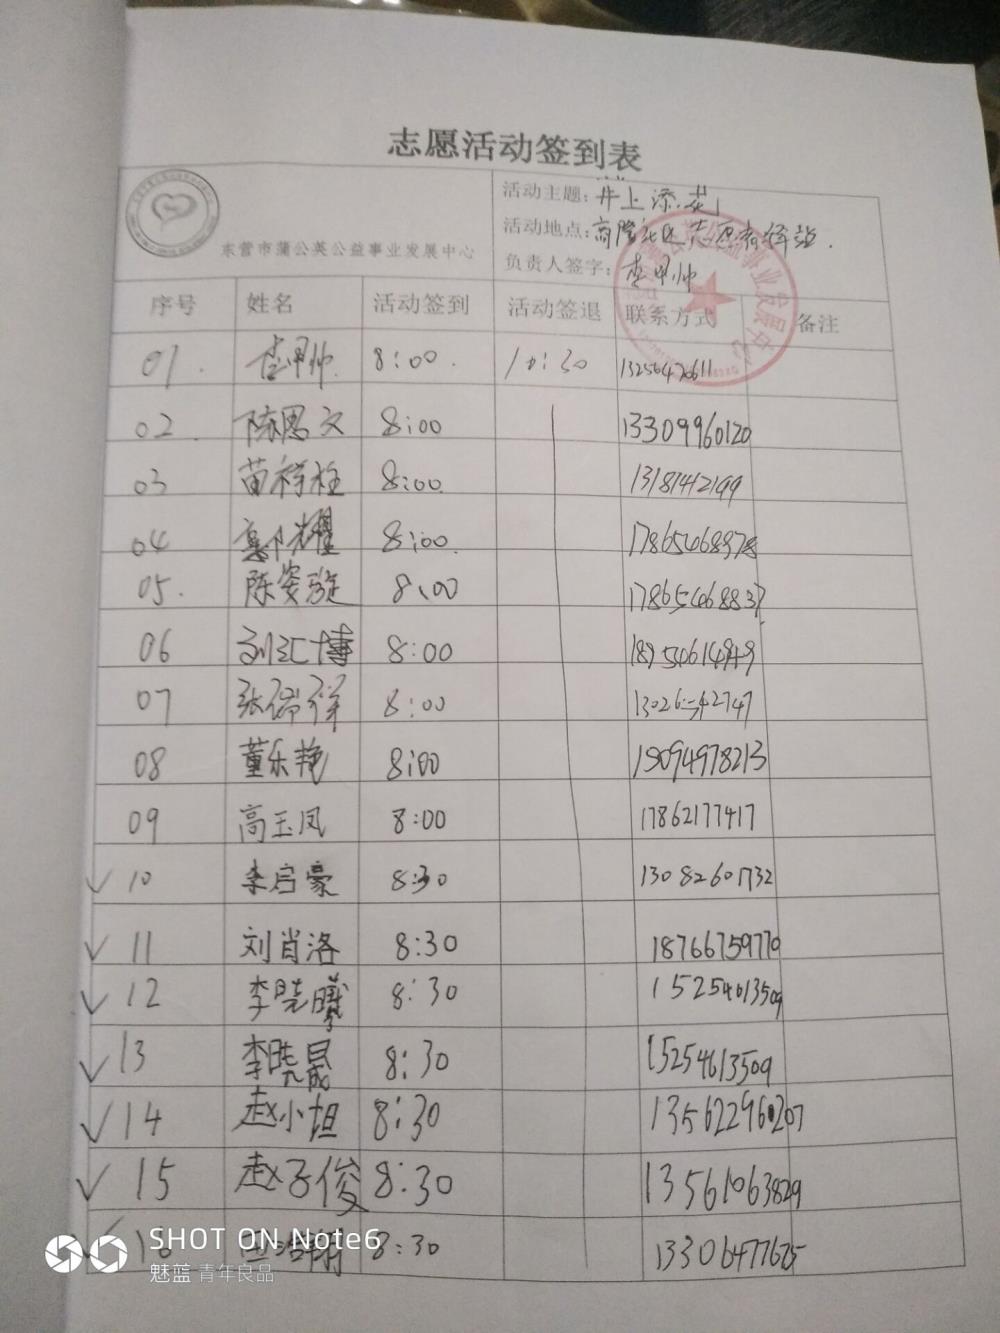 志愿活动签到表
东营市蒲公英公益事业发展中心
活动主题：井上添花
活动地点：高隆社区志愿者驿站.
负责人签字：李甲帅
序号 姓名 活动签到 活动签退 联系方式 备注
01. 李甲帅. 8:00. 10:30 13256420611
02. 陈思文 8:00 13309960120
03 苗祥柱 8:00. 13181412199
04 8:00. 17865468978
05. 陈姿璇 8:00 17865468837
06 刘汇博 8:00
07 张瑞祥 8:00
08 董乐艳 8:00
09 高玉凤 8:00 17862177417
✓ 10 李启豪 8:30 13082601732
✓ 11 刘肖洛 8:30 18766759770
✓ 12 李晓曦 8:30 15254613509
✓ 13 李晓晟 8:30 15254613509
✓ 14 赵小坦 8:30 13562296207
✓ 15 赵子俊 8:30 13561063829
16 8:30 13306477625
SHOT ON Note6
魅蓝 青年良品